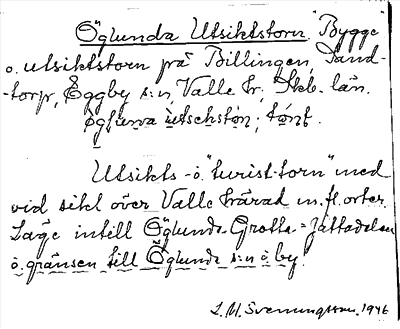 Öglunda Utsiktstorn, Bygge
o. utsiktstorn på Billingen, Sand-
-torp, Eggby s:n, Valle hr, Skb. län.
utschstón; tónt.
Utsikts- o. "turist-torn" med
vid sikt över Valle härad m.fl. orter.
Läge intill Öglunda Grotta = Jättadelen
o. gränsen till Öglunda s:n o. by.
L.M. Svenungsson, 1946